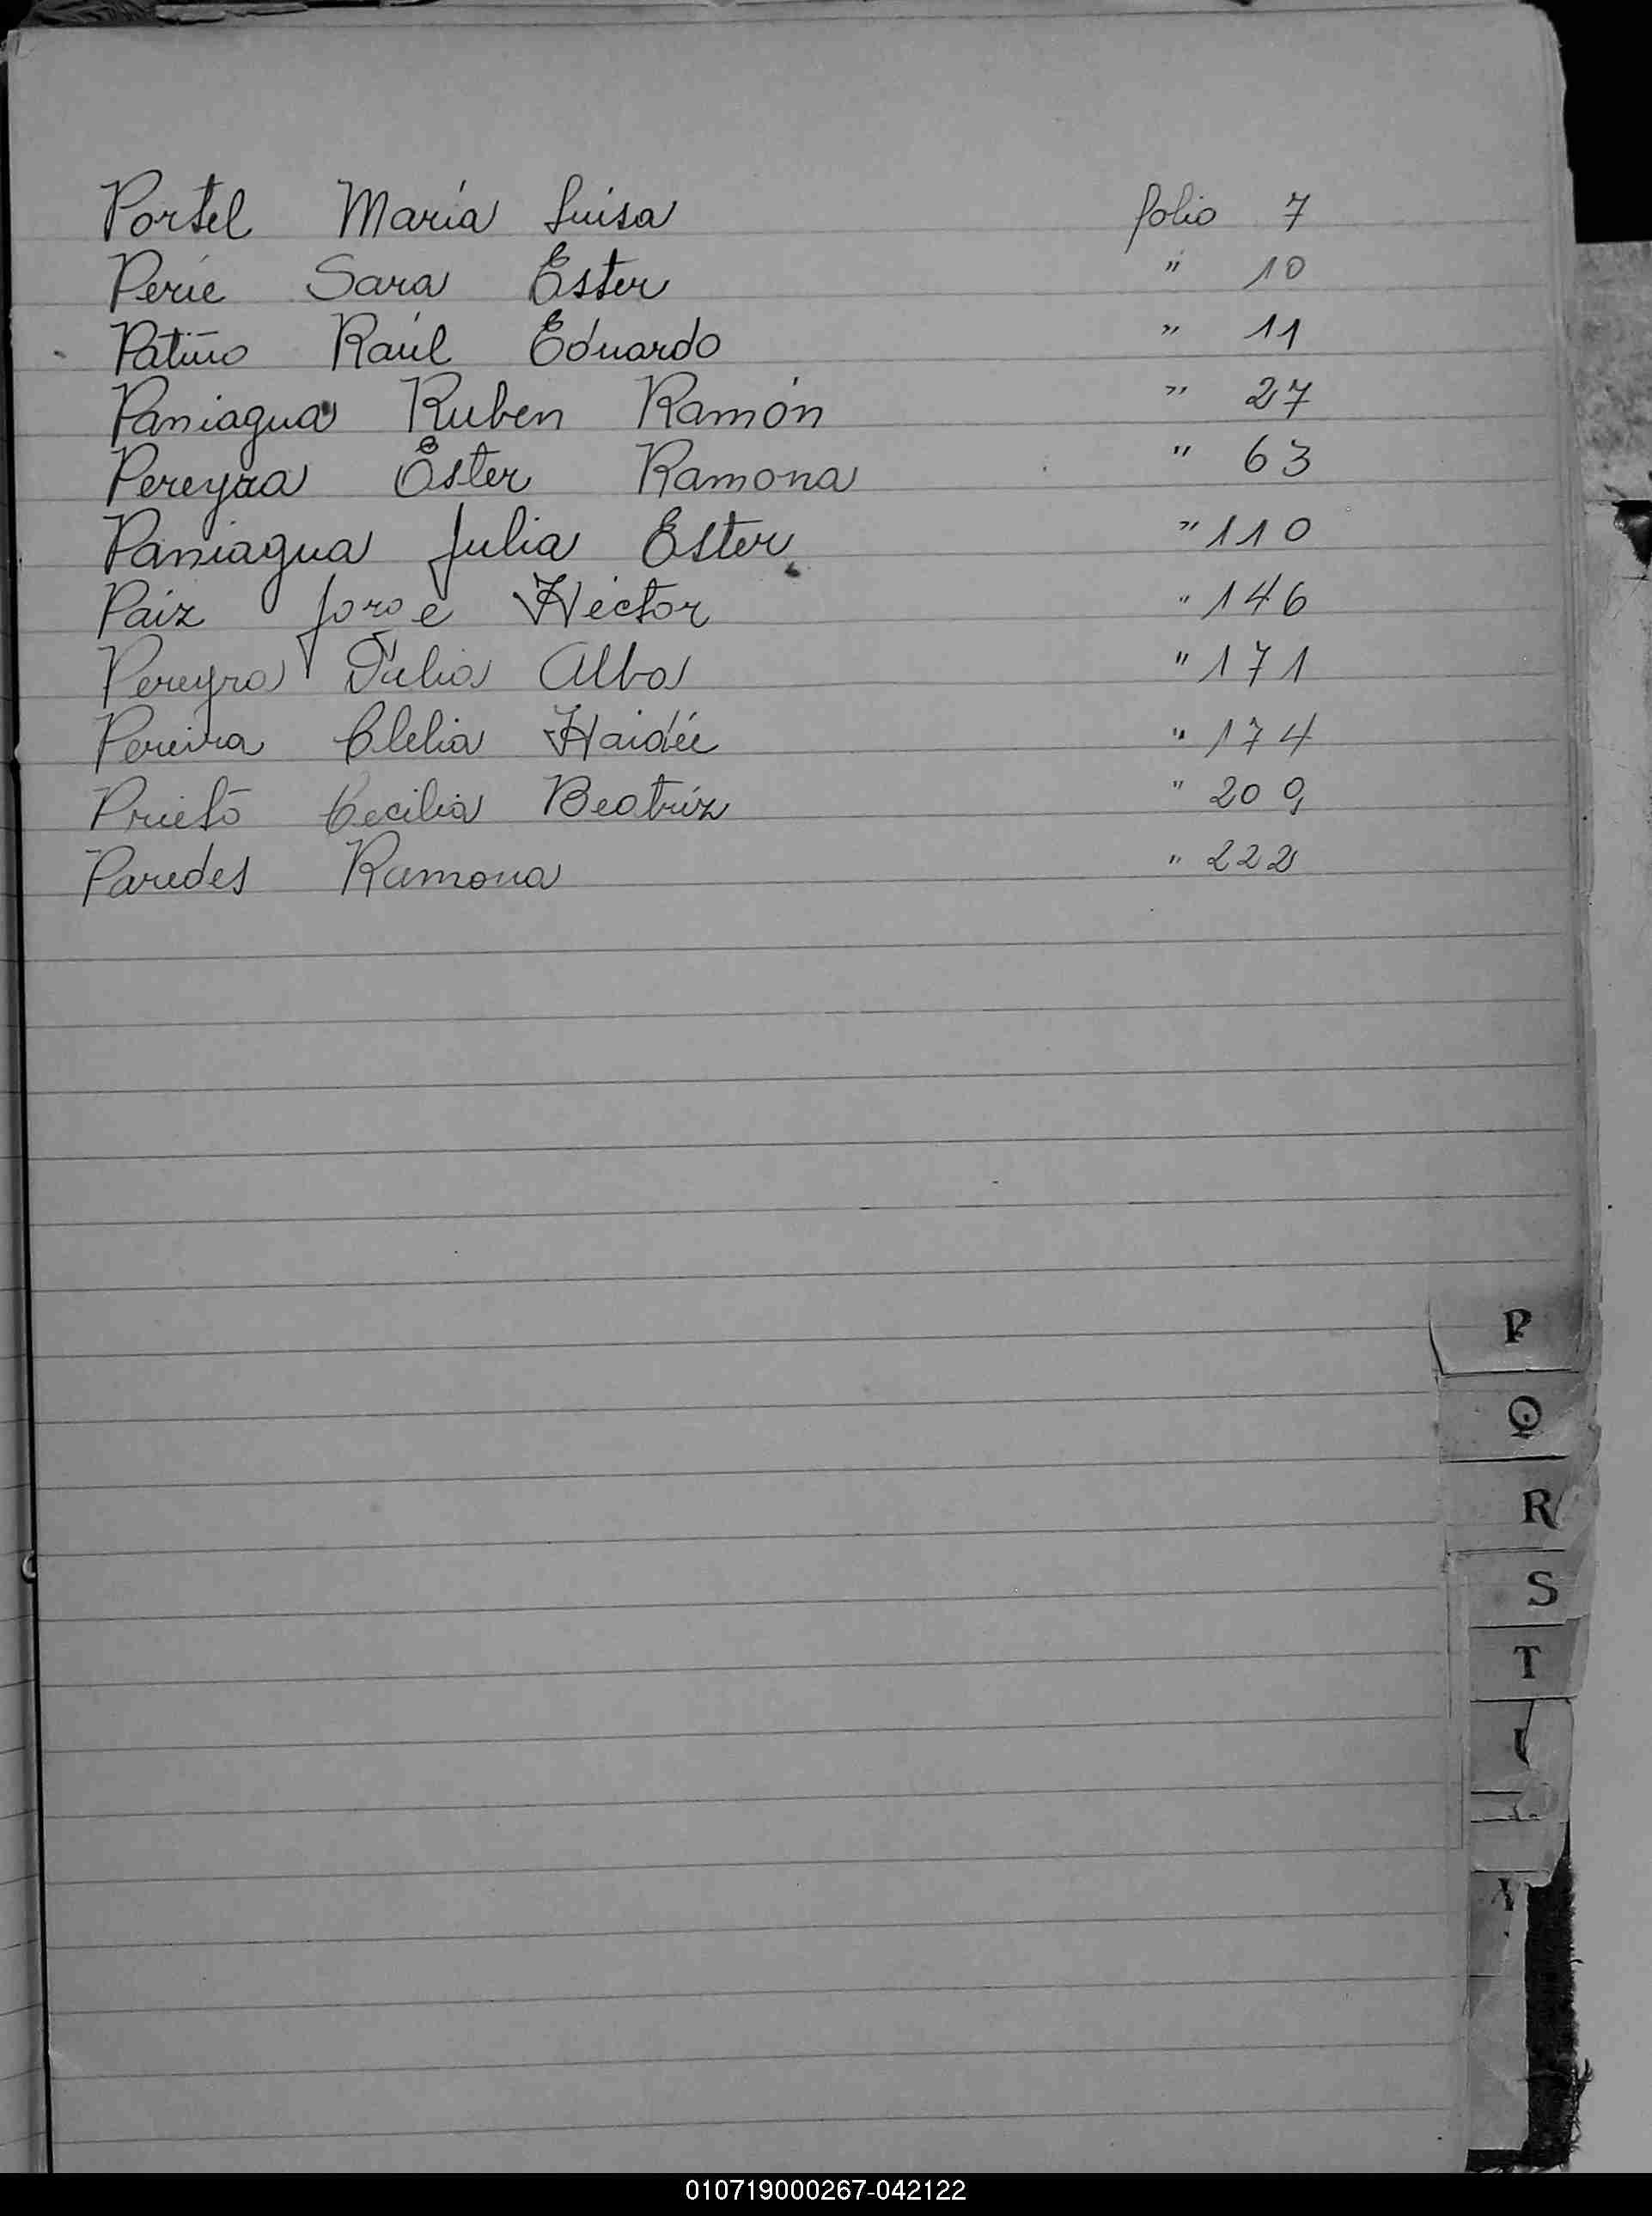 Portel María Luisa folio 7
Perie Sara Ester " 10
Patiño Raúl Eduardo " 11
Paniagua Ruben Ramón " 27
Pereyra Ester Ramona " 63
Paniagua Julia Ester " 110
Paiz Jorge Héctor " 146
Pereyra Julia Alba " 171
Pereira Clelia Haidée " 174
Prieto Cecilia Beatríz " 209
Paredes Ramona " 222
P
Q
R
S
T
010719000267-042122